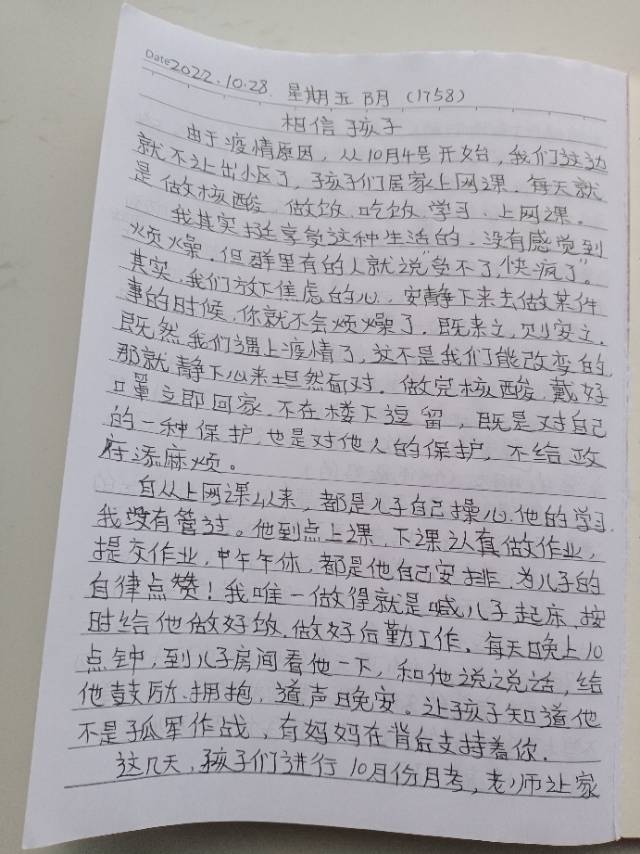 Date 2022.10.28 星期五 B月 (1758)
相信孩子
由于疫情原因,从10月4号开始,我们这边
就不让出小区了,孩子们居家上网课.每天就
是做核酸、做饭、吃饭、学习、上网课。
我其实挺享受这种生活的.没有感觉到
烦燥,但群里有的人就说"受不了,快疯了"。
其实,我们放下焦虑的心,安静下来去做某件
事的时候,你就不会烦燥了.既来之,则安之.
既然我们遇上疫情了,这不是我们能改变的
那就静下心来坦然面对.做完核酸,戴好
口罩立即回家.不在楼下逗留,既是对自己
的一种保护,也是对他人的保护,不给政
府添麻烦。
自从上网课以来,都是儿子自己操心他的学习.
我没有管过。他到点上课.下课认真做作业,
提交作业,中午午休,都是他自己安排,为儿子的
自律点赞!我唯一做得就是喊儿子起床,按
时给他做好饭.做好后勤工作.每天晚上10
点钟,到儿子房间看他一下,和他说说话,给
他鼓励、拥抱.道声晚安。让孩子知道他
不是孤军作战,有妈妈在背后支持着你.
这几天,孩子们进行10月份月考,老师让家